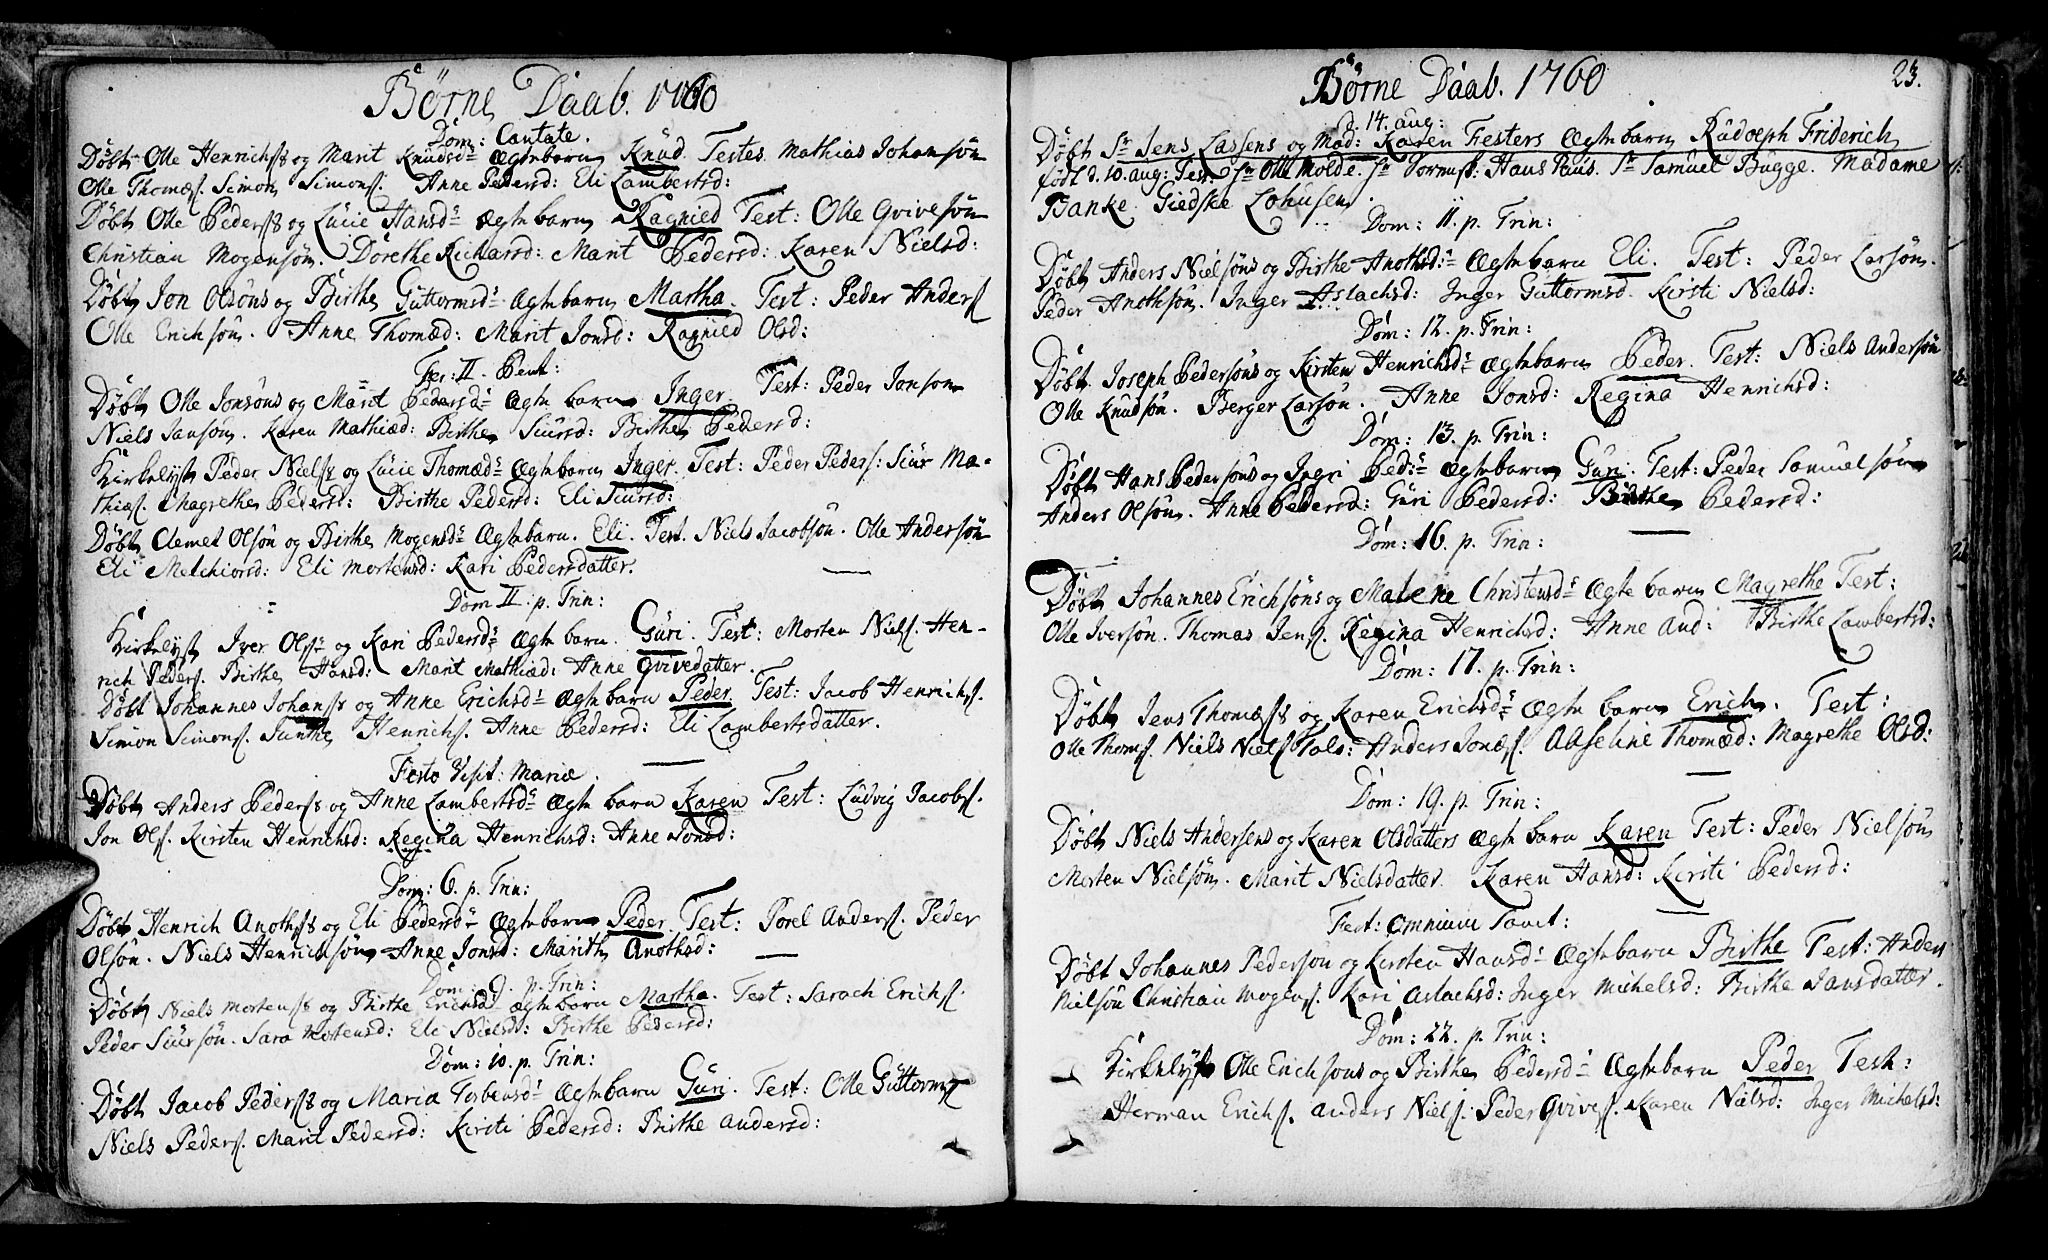 Børne Daab. 1760
Dom: Cantate.
Døbt Olle Henrichs: og Marit Knudsd: Ægte barn Knud. Testes. Mathias Johansøn
Olle Thomæs. Simon Simons. Anne Pedersd: Eli Lambertsd:
Døbt Olle Peders: og Lucie Hansd: Ægte barn Ragnied Test: Olle Qvivesøn
Christian Mogensøn. Dorethe Richarsd: Marit Pedersd: Karen Nielsd:
Døbt Jon Olsøns og Birthe Guttormsd: Ægte barn Martha. Test: Peder Anders
Olle Erichsøn. Anne Thomæd: Marit Jonsd: Ragnied Olsd:
Fer: II. Pent:
Døbt Olle Jonsøns og Marit Pedersd: Ægte barn Inger. Test: Peder Jonsøn
Niels Jansøn. Karen Mathiæd: Birthe Siursd: Birthe Pedersd:
Kirkelyst Peder Niels: og Lucie Thomæd: Ægte barn Inger. Test: Peder Peders: Siur Ma-
thiæs. Magrethe Pedersd: Birthe Pedersd: Eli Siursd:
Døbt Clemet Olsøn og Birthe Mogensd: Ægte barn. Eli. Test. Niels Jacobsøn. Olle Andersøn
Eli Melchiorsd: Eli Mortensd: Kari Pedersdatter.
Dom II. p. Trin:
Kirkelyst Iver Ols: og Kari Pedersd: Ægte barn. Guri. Test: Morten Niels. Hen-
rich Peders. Birthe Hansd: Marit Mathiæd: Anne Qvivedatter.
Døbt Johannes Johans: og Anne Erichsd: Ægte barn Peder. Test: Jacob Henrichs.
Simon Simons. Henrichs. Anne Pedersd: Eli Lambertsdatter.
Festo Visit: Mariæ.
Døbt Anders Peders: og Anne Lambertsd: Ægte barn Karen Test: Ludvig Jacobs.
Jon Ols. Kirsten Henrichsd: Regina Henrichsd: Anne Jonsd:
Dom: 6. p. Trin:
Døbt Henrich Anoths: og Eli Pedersd: Ægte barn Peder Test: Porel Anders. Peder
Olsøn. Niels Henrichsøn Anne Jonsd: Marith Anothsd:
Dom: 9. p. Trin:
Døbt Niels Mortens: og Birthe Erichsd: Ægte barn Martha. Test: Sarach Erichs.
Peder Siursøn. Sara Mortensd: Eli Nielsd: Birthe Pedersd:
Dom: 10. p. Trin:
Døbt Jacob Peders: og Maria Torbensd: Ægte barn Guri. Test: Olle Guttorms
Niels Peders. Marit Pedersd: Kirsti Pedersd: Birthe Andersd:
Børne Daab. 1760
23.
d. 14. aug:
Døbt Sr Jens Lassens og Mad: Karen Festers Ægte barn Rudolph Friderich
født d. 10. aug: Test. Sr Olle Molde. Sr Hans Sr Samuel Bugge. Madame
Banke. Giedske Lohusen
Dom: 11. p. Trin:
Døbt Anders Nielsøns og Birthe Anothsd: Ægte barn Eli. Test: Peder Larsøn.
Peder Anothsøn. Inger Aslachsd: Inger Guttormsd. Kirsti Nielsd:
Dom: 12. p. Trin:
Døbt Joseph Pedersøns og Kirsten Henrichsd: Ægte barn Peder. Test: Niels Andersøn
Olle Knudsøn. Berger Larsøn. Anne Jonsd: Regina Henrichsd:
Dom: 13. p. Trin:
Døbt Hans Pedersøns og Ingri Ped: Ægte barn Guri. Test: Peder Samuelsøn
Anders Olsøn. Anne Pedersd: Guri Pedersd: Birthe Pedersd:
Dom: 16. p. Trin:
Døbt Johannes Erichsøns og Malene Christensd: Ægte barn Magrethe Test:
Olle Iversøn. Thomas Jens. Regina Henrichsd: Anne And: Birthe Lambertsd:
Dom: 17. p. Trin:
Døbt Jens Thomæs: og Karen Erichsd: Ægte barn Erich. Test:
Olle Thoms. Niels Niels Anders Jonæs. Abseline Thomæd: Magrethe Olsd:
Dom: 19. p. Trin:
Døbt Niels Andersens og Karen Olsdatters Ægte barn Karen Test: Peder Nielsøn
Morten Nielsøn. Marit Nielsdatter. Karen Hansd: Kirsti Pedersd:
Fest: Omnium Sanct:
Døbt Johannes Pedersøn og Kirsten Hansd: Ægte barn Birthe Test: Anders
Nielsøn Christian Mogens. Kari Aslachsd: Inger Michelsd: Birthe Jansdatter.
Dom: 22. p. Trin:
Kirkelyst Olle Erichsøns og Birthe Pedersd: Ægte barn Peder Test:
Herman Erichs. Anders Niels. Peder Qvives. Karen Nielsd: Inger Michelsd: